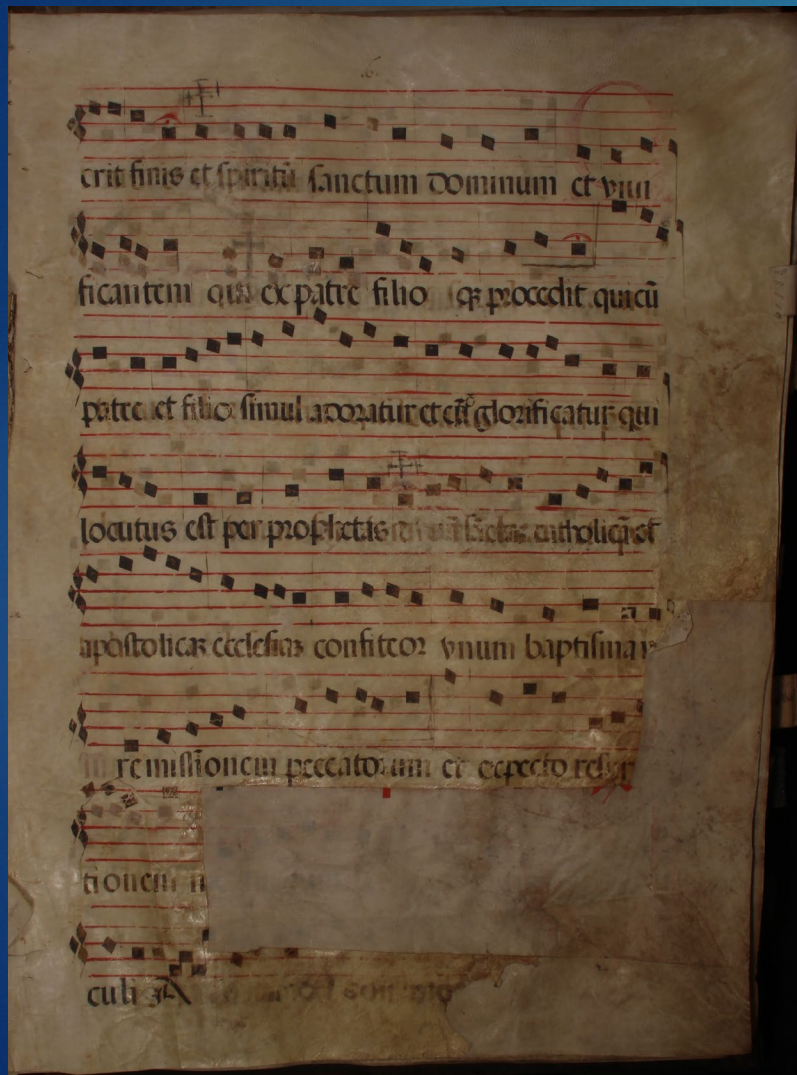 erit finis et spiritū sanctum dominum et viui
ficantem qui ex patre filio qꝫ procedit quicū
patre et filio simul adoratur et glorificatur qui
locutus est per prophetas
apostolicaꝫ ecclesiaꝫ confiteor vnum baptisma
remissionem peccatorum et expecto resur
tionem
culi